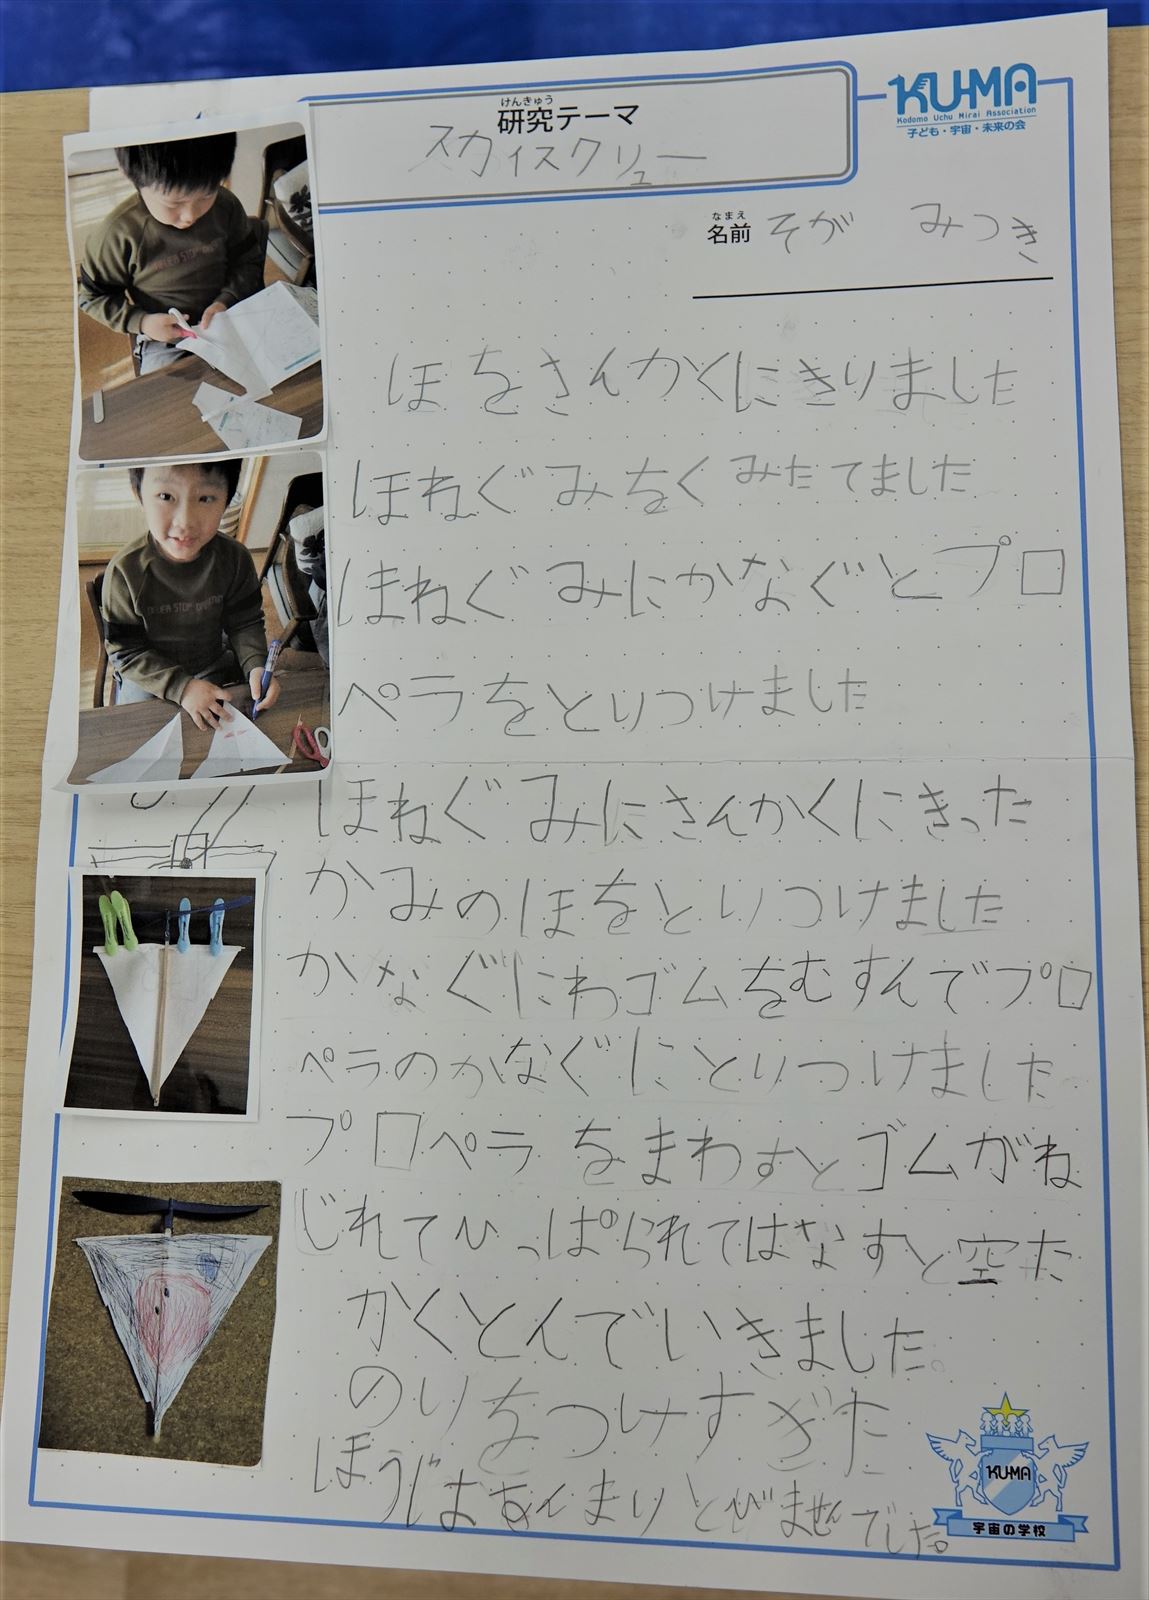 けんきゅう
研究テーマ
スカイスクリュー
KU-MA
Kodomo Uchu Mirai Association
子ども・宇宙・未来の会
なまえ
名前 そが みつき
ほをさんかくにきりました
ほねぐみをくみたてました
ほねぐみにかなぐとプロ
ペラをとりつけました
ほねぐみにさんかくにきった
かみのほをとりつけました
かなぐにわゴムをむすんでプロ
ペラのかなぐにとりつけました
プロペラをまわすとゴムがね
じれてひっぱられてはなすと空た
かくとんでいきました。
のりをつけすぎた
ほうはあんまりとびませんでした。
KU-MA
宇宙の学校